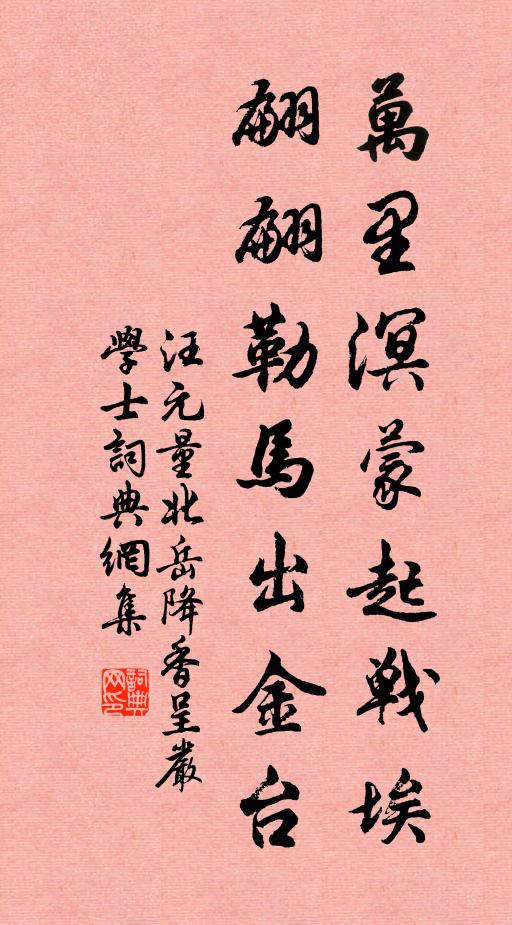 萬里溟蒙起戦埃
翩翩勒馬出金台
汪元量北岳降香呈嚴
學士詞典網集
詞典网印